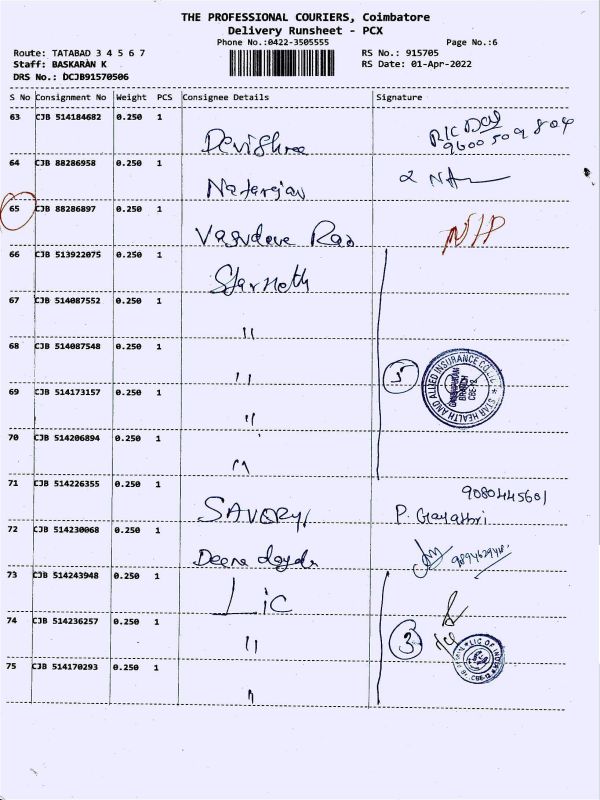 THE PROFESSIONAL COURIERS, Coimbatore
Delivery Runsheet - PCX
Phone No.:0422-3505555 Page No.:6
Route: TATABAD 3 4 5 6 7 RS No.: 915705
Staff: BASKARAN K RS Date: 01-Apr-2022
DRS No.: DCJB91570506
S No Consignment No Weight PCS Consignee Details Signature
63 CJB 514184682 0.250 1 Devishree
64 CJB 88286958 0.250 1 Natarajan
65 CJB 88286897 0.250 1 Vasudeva Rao
66 CJB 513922075 0.250 1 Starhelth
67 CJB 514087552 0.250 1 "
68 CJB 514087548 0.250 1 " 5
STAR HEALTH AND ALLIED INSURANCE CO. BRANCH CBE-12
69 CJB 514173157 0.250 1 "
70 CJB 514206894 0.250 1 "
71 CJB 514226355 0.250 1 SAVORY 9080445601
P. Gayathri
72 CJB 514230068 0.250 1 Deena
73 CJB 514243948 0.250 1 Lic
74 CJB 514236257 0.250 1 " 3
LIC OF INDIA CBE-12
75 CJB 514170293 0.250 1 "